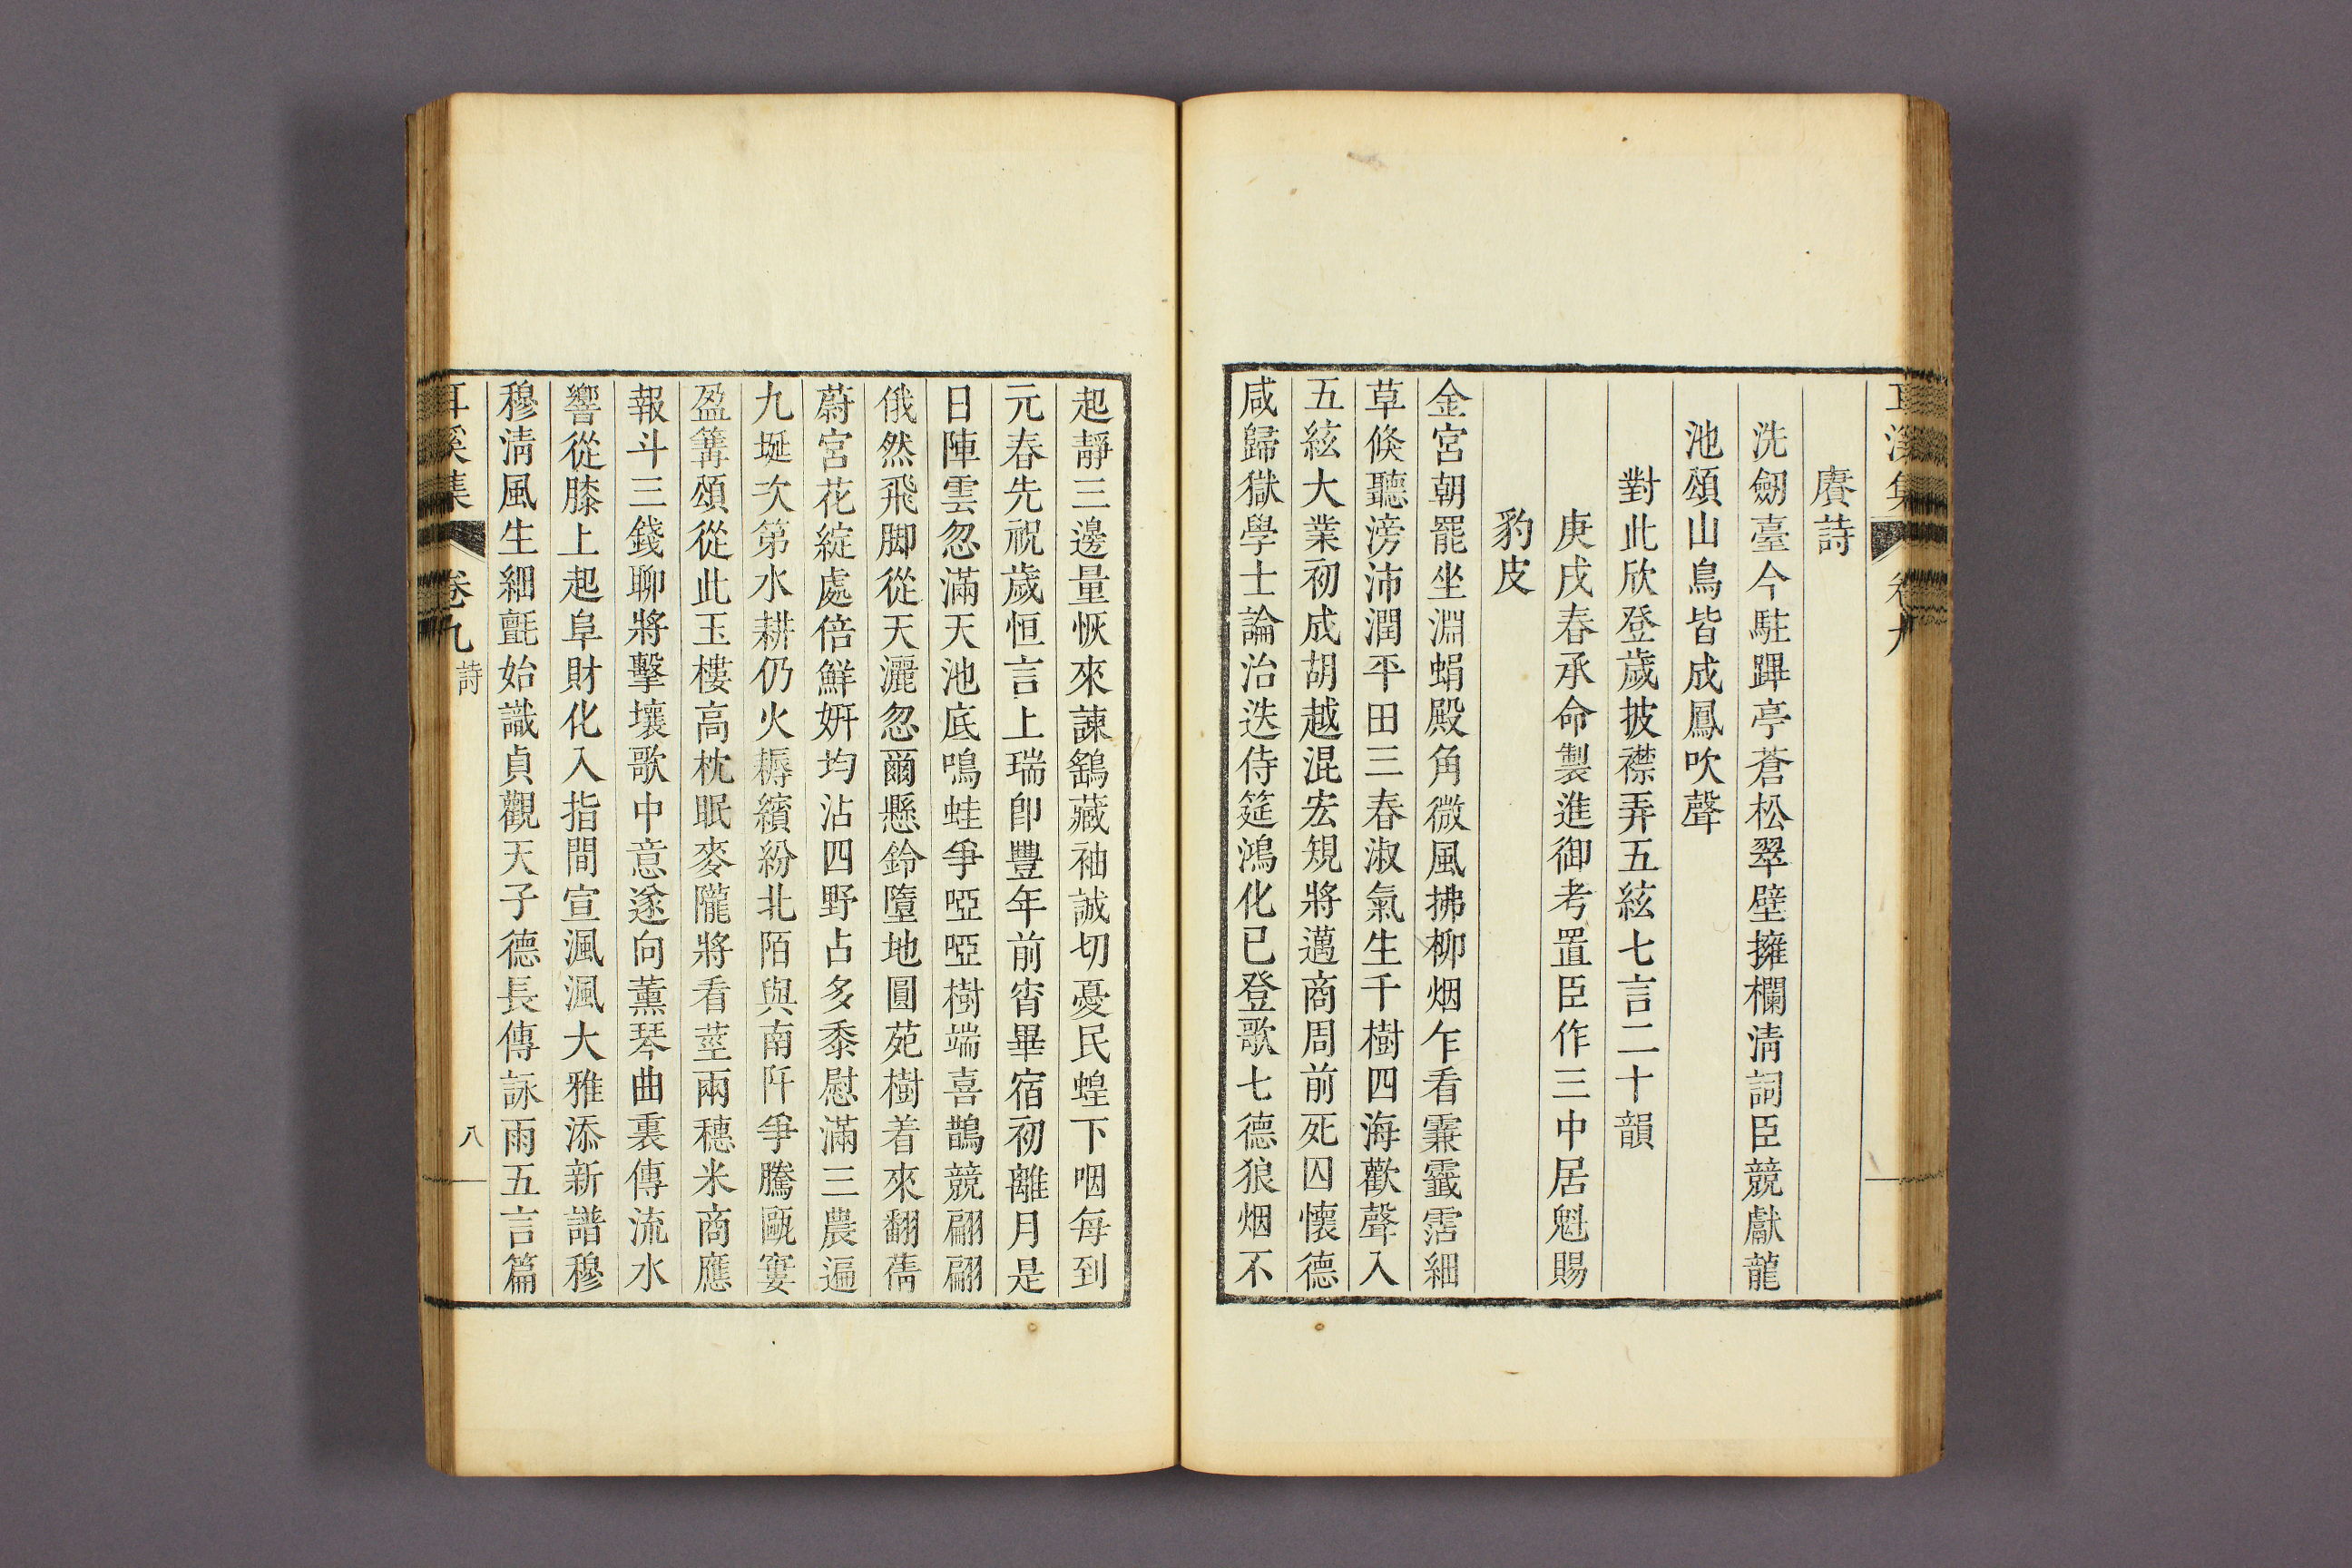 耳溪集 卷九
賡詩
洗劒臺今駐蹕亭蒼松翠壁擁欄淸詞臣競獻龍
池頌山鳥皆成鳳吹聲
對此欣登歲披襟弄五絃七言二十韻
庚戌春承命製進御考置臣作三中居魁賜
豹皮
金宮朝罷坐淵蜎殿角微風拂柳烟乍看霢霂霑細
草倐聽滂沛潤平田三春淑氣生千樹四海歡聲入
五絃大業初成胡越混宏規將邁商周前死囚懷德
咸歸獄學士論治迭侍筵鴻化已登歌七德狼烟不
起靜三邊量恢來諫鷂藏袖誠切憂民蝗下咽每到
元春先祝歲恒言上瑞卽豐年前宵畢宿初離月是
日陣雲忽滿天池底鳴蛙爭啞啞樹端喜鵲競翩翩
俄然飛脚從天灑忽爾懸鈴墮地圓苑樹着來翻蒨
蔚宮花綻處倍鮮姸均沾四野占多黍慰滿三農遍
九埏次第水耕仍火耨繽紛北陌與南阡爭騰甌窶
盈篝頌從此玉樓高枕眠麥隴將看莖兩穗米商應
報斗三錢聊將擊壤歌中意遂向薰琴曲裏傳流水
響從膝上起阜財化入指間宣渢渢大雅添新譜穆
穆淸風生細氈始識貞觀天子德長傳詠雨五言篇
耳溪集 卷九 詩 八